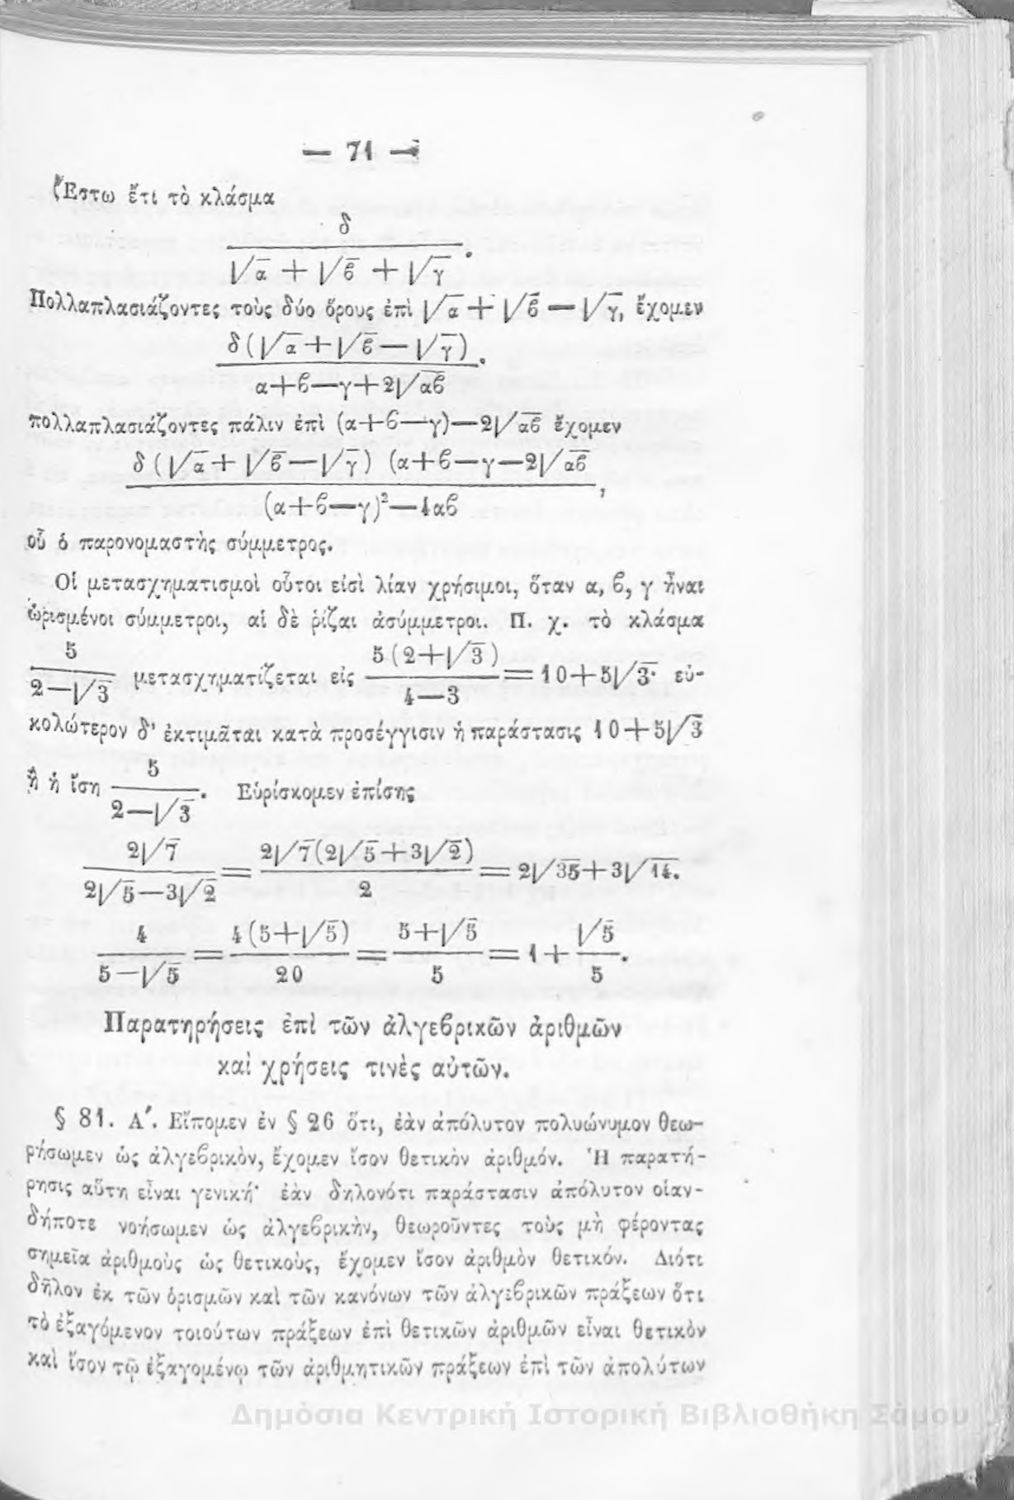 — 71 —
Ἔστω ἔτι τὸ κλάσμα
δ
√α + √β + √γ .
Πολλαπλασιάζοντες τοὺς δύο ὅρους ἐπὶ √α + √β — √γ, ἔχομεν
δ (√α + √β — √γ) .
α+β—γ+2√αβ
πολλαπλασιάζοντες πάλιν ἐπὶ (α+β—γ)—2√αβ ἔχομεν
δ (√α + √β — √γ) (α+β—γ—2√αβ
(α+β—γ)²—4αβ ,
οὗ ὁ παρονομαστὴς σύμμετρος.
Οἱ μετασχηματισμοὶ οὗτοι εἰσὶ λίαν χρήσιμοι, ὅταν α, β, γ ἦναι
ὡρισμένοι σύμμετροι, αἱ δὲ ῥίζαι ἀσύμμετροι. Π. χ. τὸ κλάσμα
5 5 (2+√3)
2—√3 μετασχηματίζεται εἰς 4—3 = 10+5√3· εὐ-
κολώτερον δ' ἐκτιμᾶται κατὰ προσέγγισιν ἡ παράστασις 10+5√3
ἢ ἡ ἴση 5
2—√3 . Εὑρίσκομεν ἐπίσης
2√7 2√7(2√5+3√2)
2√5—3√2 = 2 = 2√35+3√14.
4 4 (5+√5) 5+√5 √5
5—√5 = 20 = 5 = 1 + 5 .
Παρατηρήσεις ἐπὶ τῶν ἀλγεβρικῶν ἀριθμῶν
καὶ χρήσεις τινὲς αὐτῶν.
§ 81. Α΄. Εἴπομεν ἐν § 26 ὅτι, ἐὰν ἀπόλυτον πολυώνυμον θεω-
ρήσωμεν ὡς ἀλγεβρικὸν, ἔχομεν ἴσον θετικὸν ἀριθμόν. Ἡ παρατή-
ρησις αὕτη εἶναι γενική· ἐὰν δηλονότι παράστασιν ἀπόλυτον οἱαν-
δήποτε νοήσωμεν ὡς ἀλγεβρικὴν, θεωροῦντες τοὺς μὴ φέροντας
σημεῖα ἀριθμοὺς ὡς θετικοὺς, ἔχομεν ἴσον ἀριθμὸν θετικόν. Διότι
δῆλον ἐκ τῶν ὁρισμῶν καὶ τῶν κανόνων τῶν ἀλγεβρικῶν πράξεων ὅτι
τὸ ἐξαγόμενον τοιούτων πράξεων ἐπὶ θετικῶν ἀριθμῶν εἶναι θετικὸν
καὶ ἴσον τῷ ἐξαγομένῳ τῶν ἀριθμητικῶν πράξεων ἐπὶ τῶν ἀπολύτων
Δημόσια Κεντρική Ιστορική Βιβλιοθήκη Σάμου